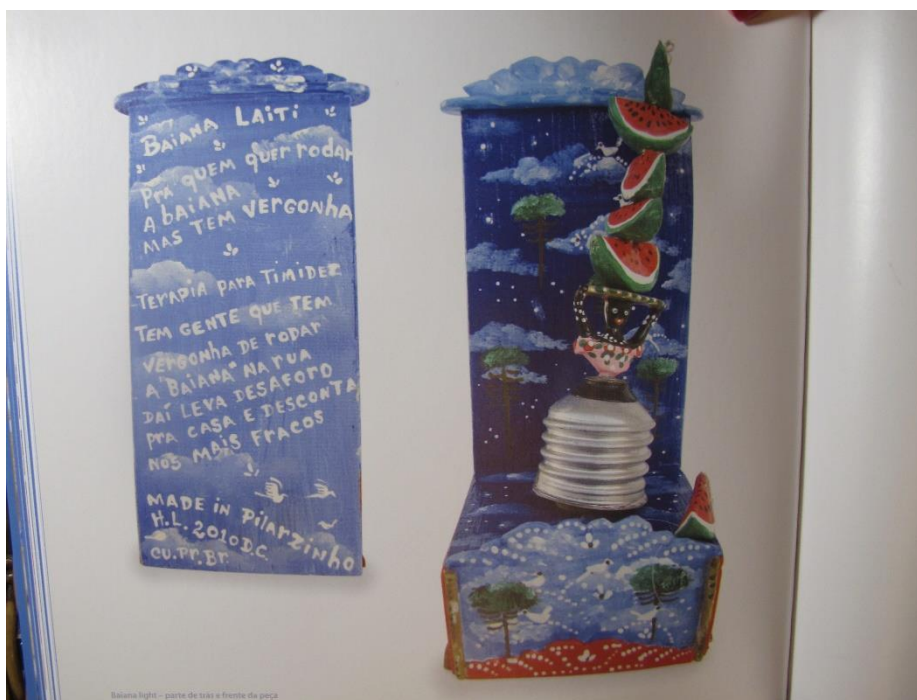 BAIANA LAITI
PRA QUEM QUER RODAR
A BAIANA
MAS TEM VERGONHA
TERAPIA PARA TIMIDEZ
TEM GENTE QUE TEM
VERGONHA DE RODAR
A "BAIANA" NA RUA
DAÍ LEVA DESAFORO
PRA CASA E DESCONTA
NOS MAIS FRACOS
MADE IN PILARZINHO
H.L. 2010 D.C.
CU.PR.BR.
Baiana light – parte de trás e frente da peça